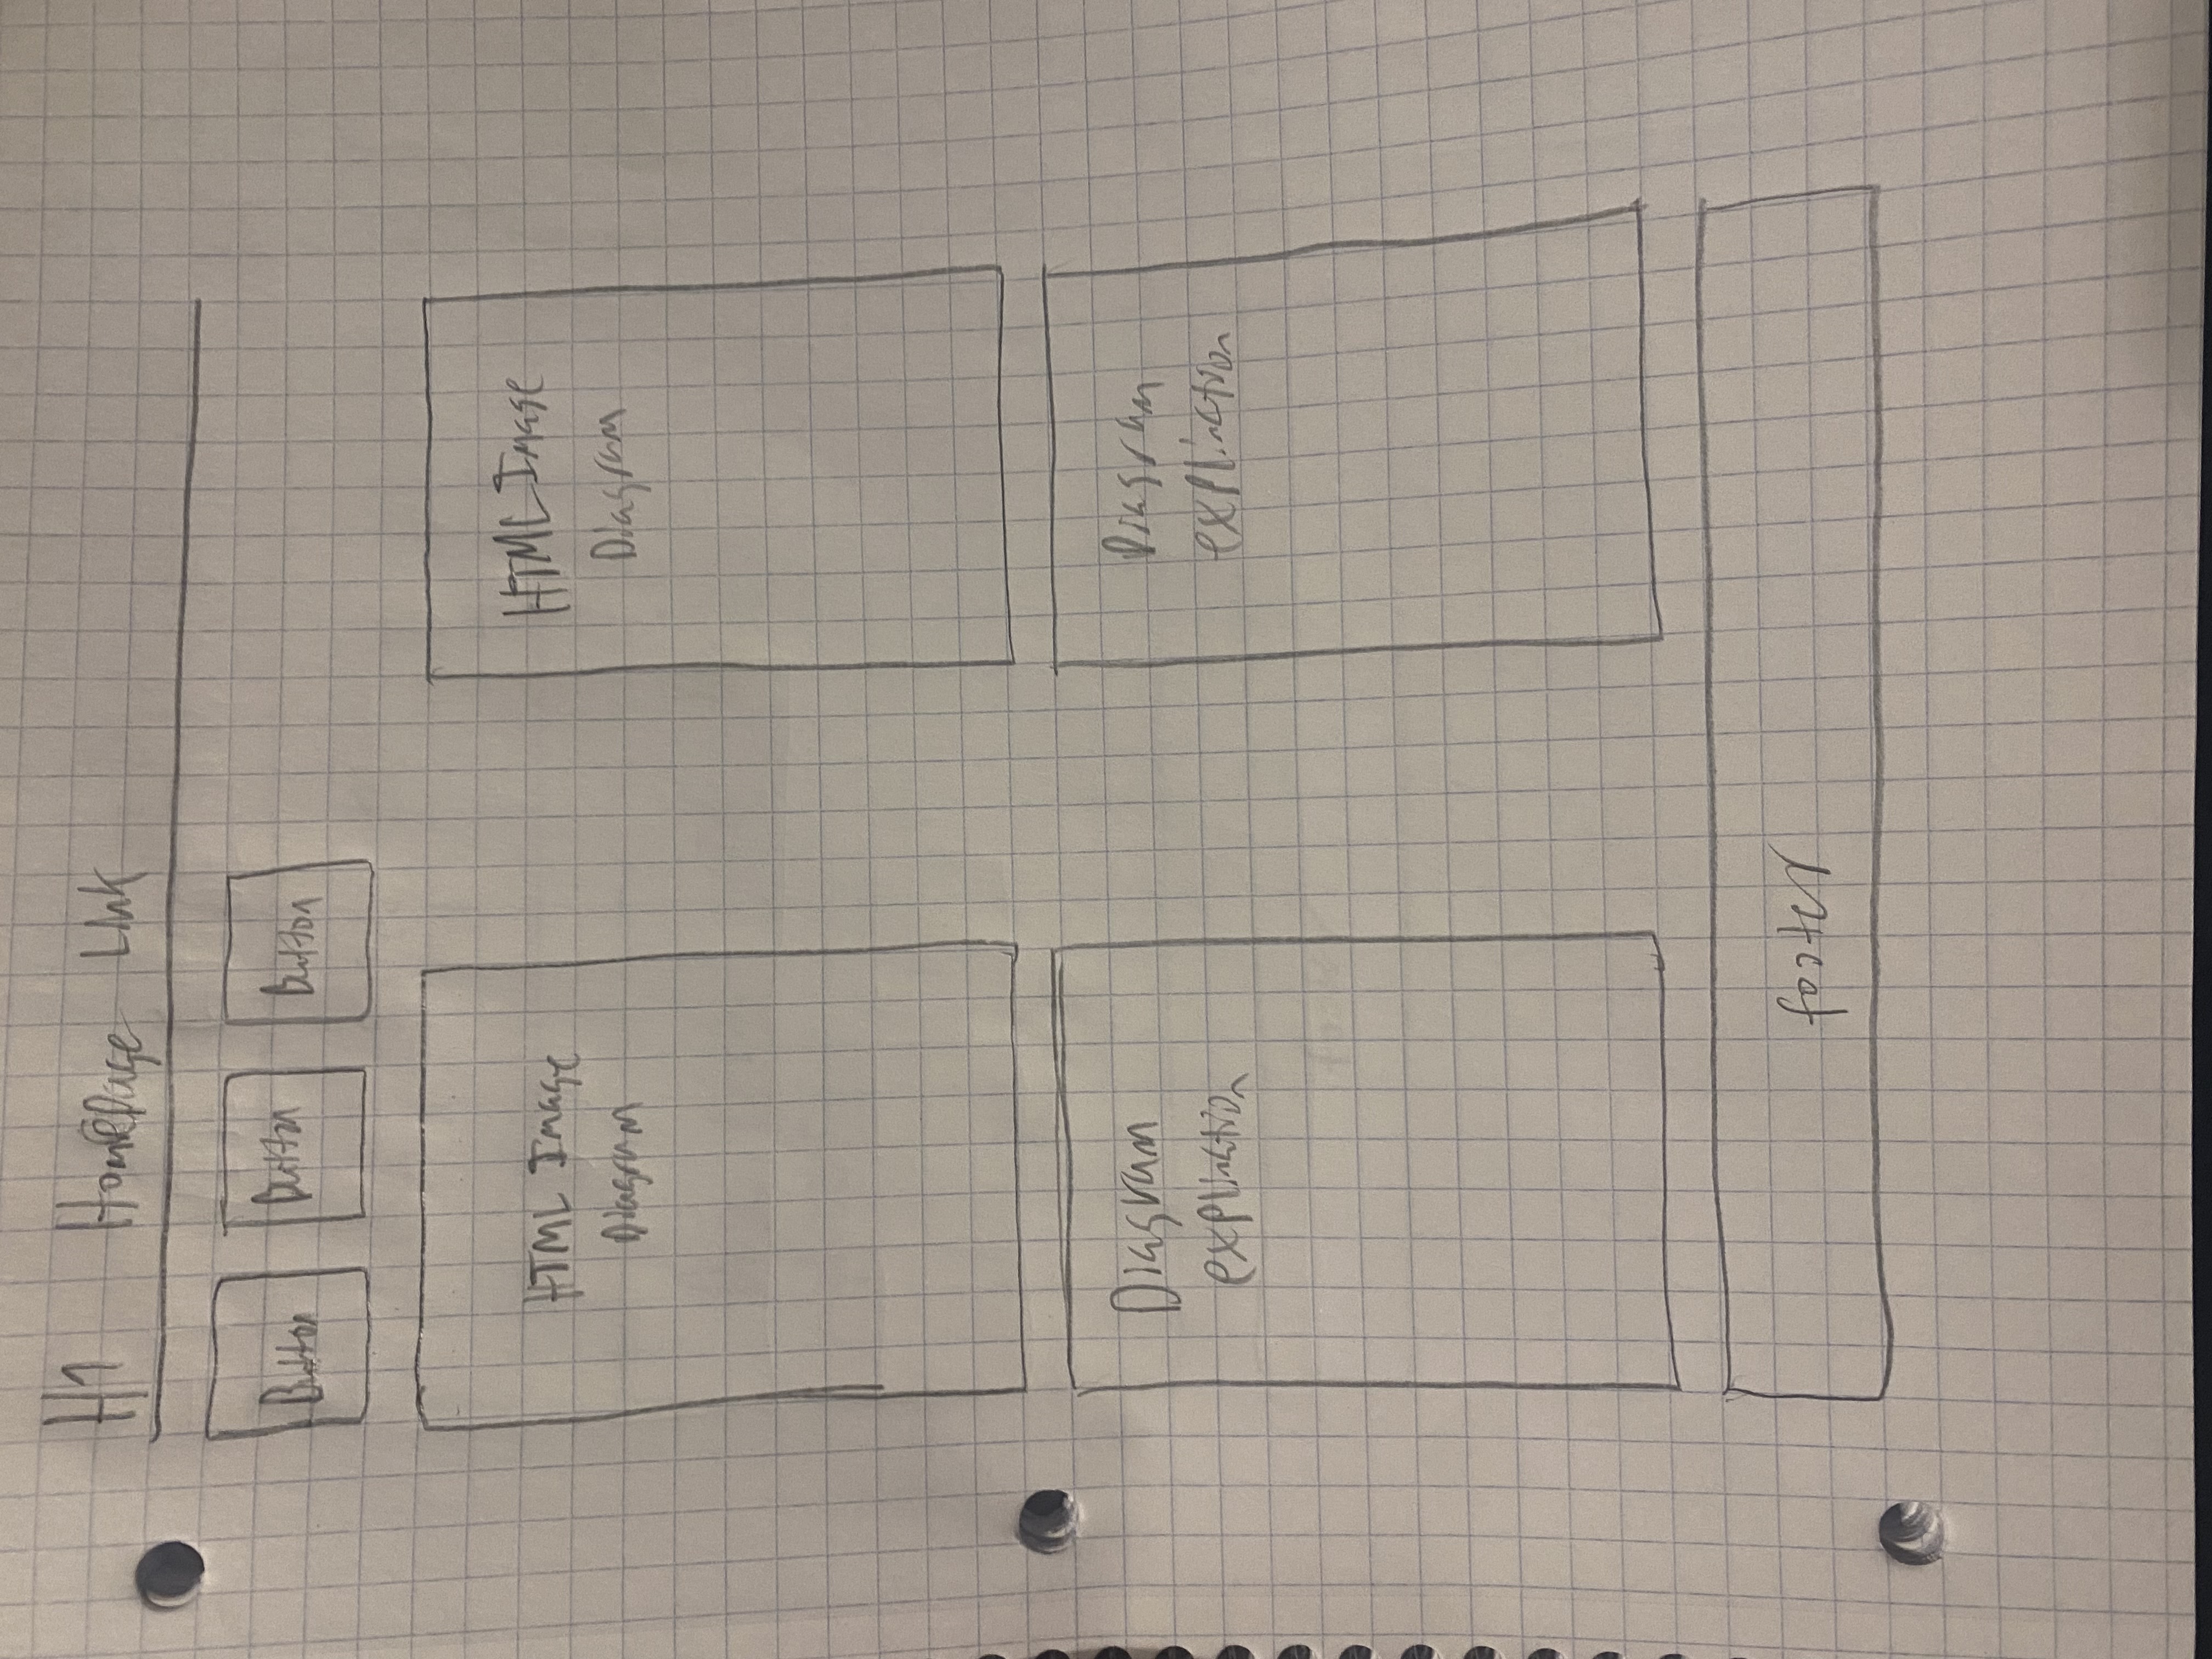 H1 HomePage Link
Button Button Button
HTML Image
Diagram
HTML Image
Diagram
Diagram
explinction
Diagram
explinction
footer